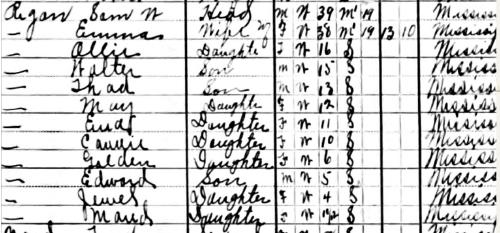 Regan Sam W Head M W 39 M1 19 Mississi
— Emma Wife F W 38 M1 19 13 10 Mississi
— Ollie Daughter F W 16 S Mississi
— Walter Son M W 15 S Mississi
— Thad Son M W 13 S Mississi
— May Daughter F W 12 S Mississi
— Daughter F W 11 S Mississi
— Daughter F W 10 S Mississi
— Golden Daughter F W 6 S Mississi
— Edward Son M W 5 S Mississi
— Jewel Daughter F W 4 S Mississi
— Maud Daughter F W S Mississi